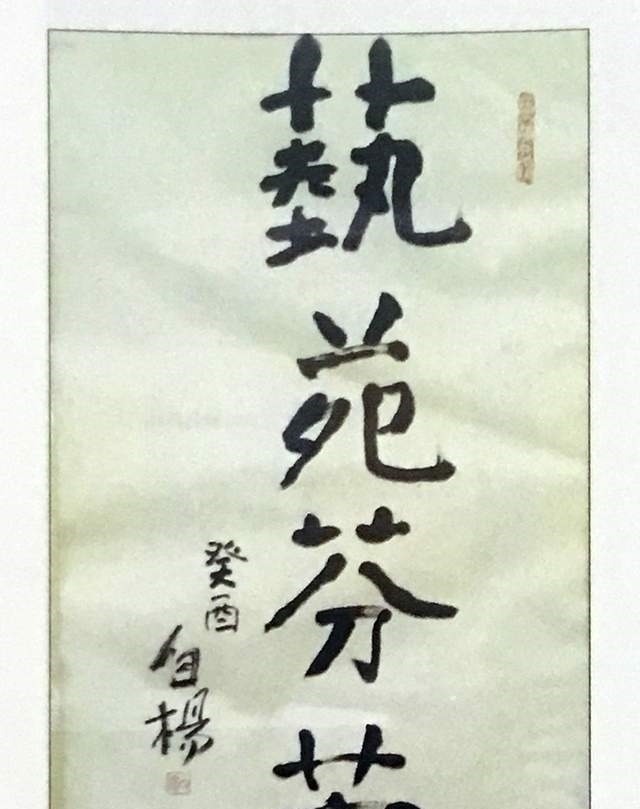 藝苑芬
癸酉
白楊